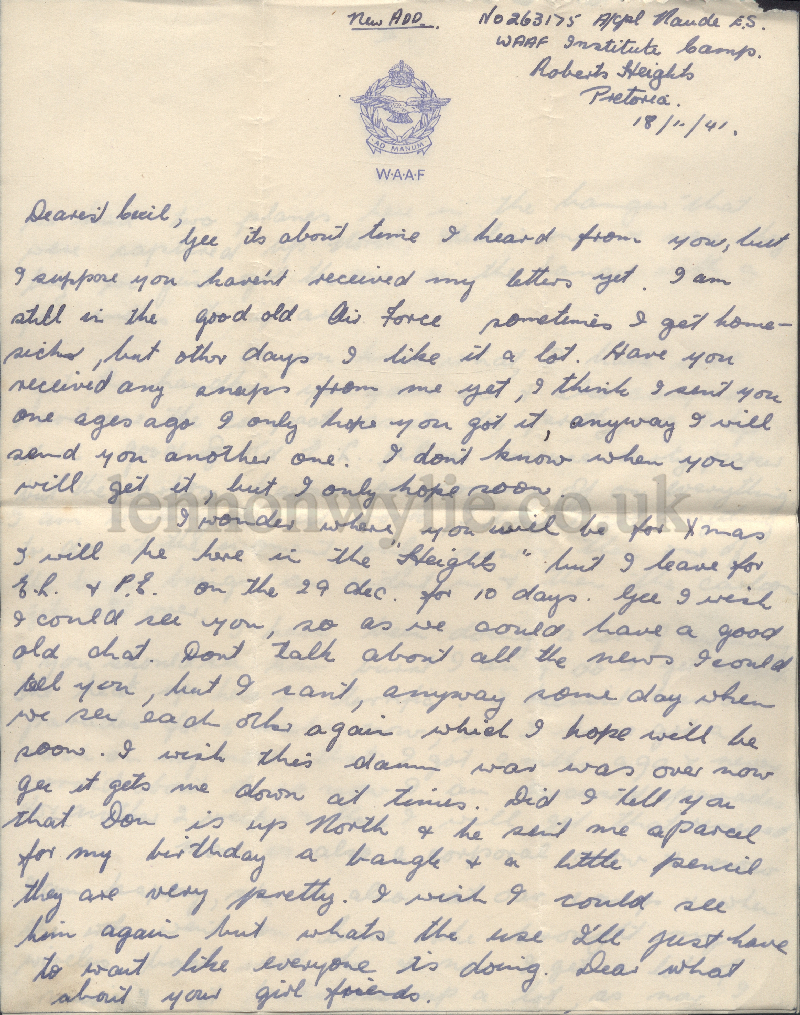 New ADD.
No 263175 A/Cpl Naude E.S.
WAAF Institute Camp.
Roberts Heights
Pretoria.
18/11/41.
AD MANUM
W·A·A·F
Dearest Cecil,
Gee its about time I heard from you, but
I suppose you haven't received my letters yet. I am
still in the good old Air Force sometimes I get home-
sick, but other days I like it a lot. Have you
received any snaps from me yet, I think I sent you
one ages ago I only hope you got it, anyway I will
send you another one. I don't know when you
will get it, but I only hope soon.
lennonwylie.co.uk
I wonder where you will be for Xmas
I will be here in the "Heights" but I leave for
E.L. & P.E. on the 29 dec. for 10 days. Gee I wish
I could see you, so as we could have a good
old chat. Dont talk about all the news I could
tell you, but I can't, anyway some day when
we see each other again which I hope will be
soon. I wish this damn war was over now
gee it gets me down at times. Did I tell you
that Don is up North & he sent me a parcel
for my birthday a bangle & a little pencil
they are very pretty. I wish I could see
him again but whats the use I'll just have
to wait like everyone is doing. Dear what
about your girl friends.